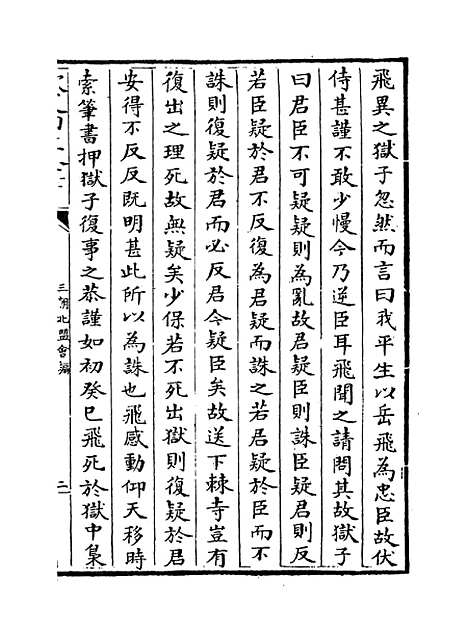 飛異之獄子忽然而言曰我平生以岳飛為忠臣故伏
侍甚謹不敢少慢今乃逆臣耳飛聞之請問其故獄子
曰君臣不可疑疑則為亂故君疑臣則誅臣疑君則反
若臣疑於君不反復為君疑而誅之若君疑於臣而不
誅則復疑於君而必反君今疑臣矣故送下棘寺豈有
復出之理死故無疑矣少保若不死出獄則復疑於君
安得不反反既明甚此所以為誅也飛感動仰天移時
索筆書押獄子復事之恭謹如初癸巳飛死於獄中梟
三朝北盟會編
二